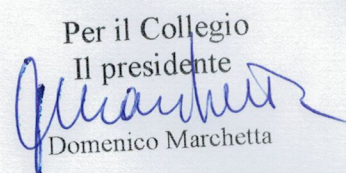 Per il Collegio
Il presidente
Domenico Marchetta